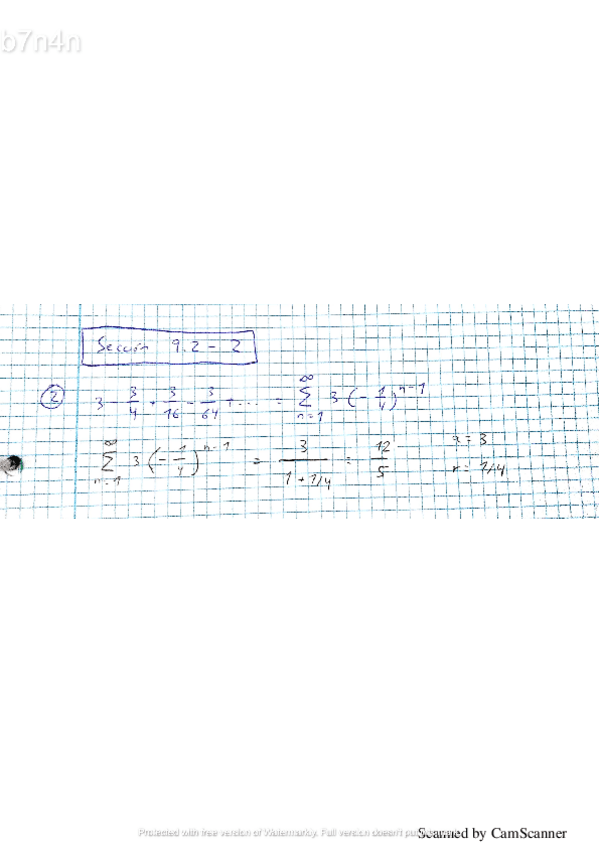 b7n4n
Sección 9.2 - 2
② 3 - 3/4 + 3/16 - 3/64 + ... = ∞ Σ n=1 3 (- 1/4)^(n-1)
∞ Σ n=1 3 (- 1/4)^(n-1) = 3/(1 + 1/4) = 12/5
a = 3
r = 1/4
Protected with free version of Watermarkly. Full version doesn't put
Scanned by CamScanner